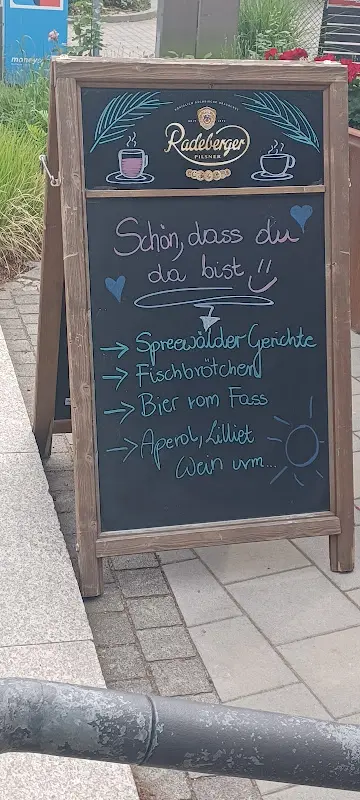 Radeberger
PILSNER
Schön, dass du
da bist !!
→ Spreewälder Gerichte
→ Fischbrötchen
→ Bier vom Fass
→ Aperol, Lilliet
Wein uvm...